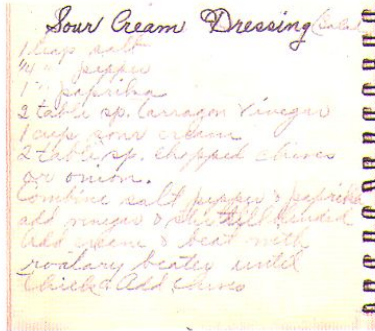 Sour Cream Dressing (Salad
1 teasp salt
1/4 " pepper
1 " paprika
2 table sp. tarragon vinegar
1 cup sour cream
2 table sp. chopped chives
or onion.
Combine salt pepper & paprika
add vinegar & stir till blended
add cream & beat with
rotary beater until
thick & Add chives